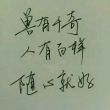 兽有千奇
人有百样
随心就好